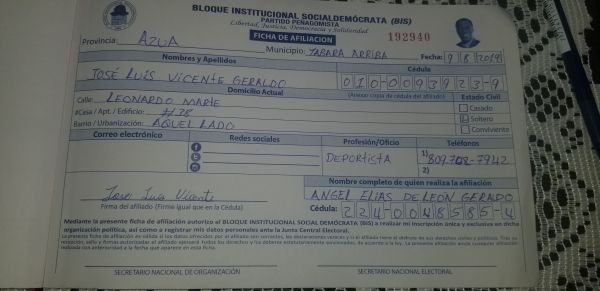 BLOQUE INSTITUCIONAL SOCIALDEMÓCRATA (BIS)
PARTIDO PEÑAGOMISTA
Libertad, Justicia, Democracia y Solidaridad
FICHA DE AFILIACION
192940
Provincia: AZUA
Municipio: TABARA ARRIBA
Fecha: 9/8/2019
Nombres y Apellidos
Cédula
JOSÉ LUIS VICENTE GERALDO
010-0093923-9
Domicilio Actual
(Anexar copia de cédula del afiliado)
Estado Civil
Calle: LEONARDO MARTE
Casado
#Casa / Apt. / Edificio: #38
Soltero
Barrio / Urbanización: AQUEL LADO
Conviviente
Correo electrónico
Redes sociales
Profesión/Oficio
Teléfonos
DEPORTISTA
1) 809-708-7942
2)
Nombre completo de quien realiza la afiliación
Jose Luis Vicente
ANGEL ELIAS DE LEÓN GERALDO
Firma del afiliado (Firma igual que en la Cédula)
Cédula: 224-0048585-4
Mediante la presente ficha de afiliación autorizo al BLOQUE INSTITUCIONAL SOCIAL DEMÓCRATA (BIS) a realizar mi inscripción única y exclusiva en dicha
organización política, así como a registrar mis datos personales ante la Junta Central Electoral.
SECRETARIO NACIONAL DE ORGANIZACIÓN
SECRETARIO NACIONAL ELECTORAL